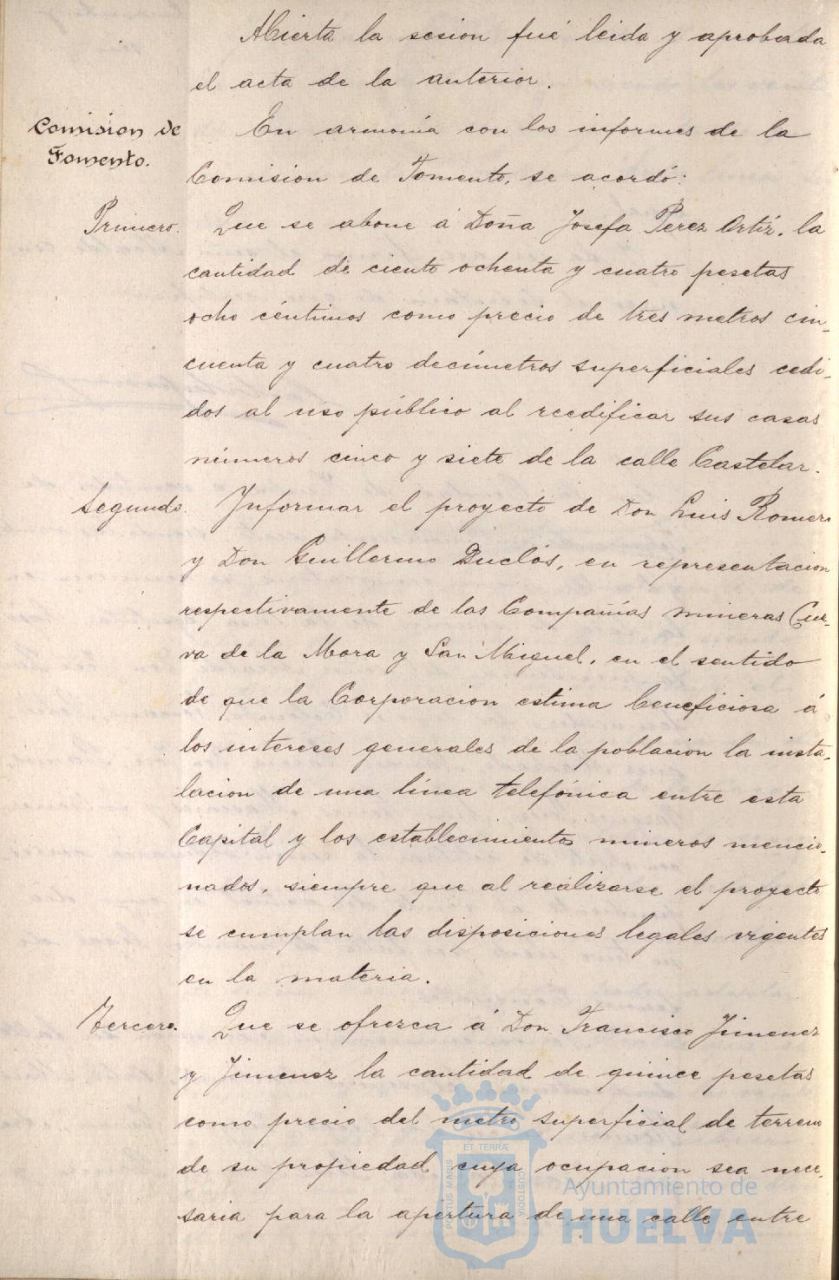 Abierta la sesion fué leida y aprobada
el acta de la anterior.
Comision de
Fomento.
En armonía con los informes de la
Comision de Fomento, se acordó:
Primero.
Que se abone á Doña Josefa Perez Ortíz, la
cantidad de ciento ochenta y cuatro pesetas
ocho céntimos como precio de tres metros cin-
cuenta y cuatro decímetros superficiales cedi-
dos al uso público al reedificar sus casas
números cinco y siete de la calle Castelar.
Segundo.
Informar el proyecto de Don Luis Romero
y Don Guillermo Duclós, en representacion
respectivamente de las Compañías mineras Cue-
va de la Mora y San Miguel, en el sentido
de que la Corporacion estima beneficiosa á
los intereses generales de la poblacion la insta-
lacion de una línea telefónica entre esta
Capital y los establecimientos mineros mencio-
nados, siempre que al realizarse el proyecto
se cumplan las disposiciones legales vigentes
en la materia.
Tercero.
Que se ofrezca á Don Francisco Jimenez
y Jimenez la cantidad de quince pesetas
como precio del metro superficial de terreno
de su propiedad cuya ocupacion sea nece-
saria para la apertura de una calle entre
PORTUS MARIS
ET TERRÆ
CUSTODIA
Ayuntamiento de
HUELVA